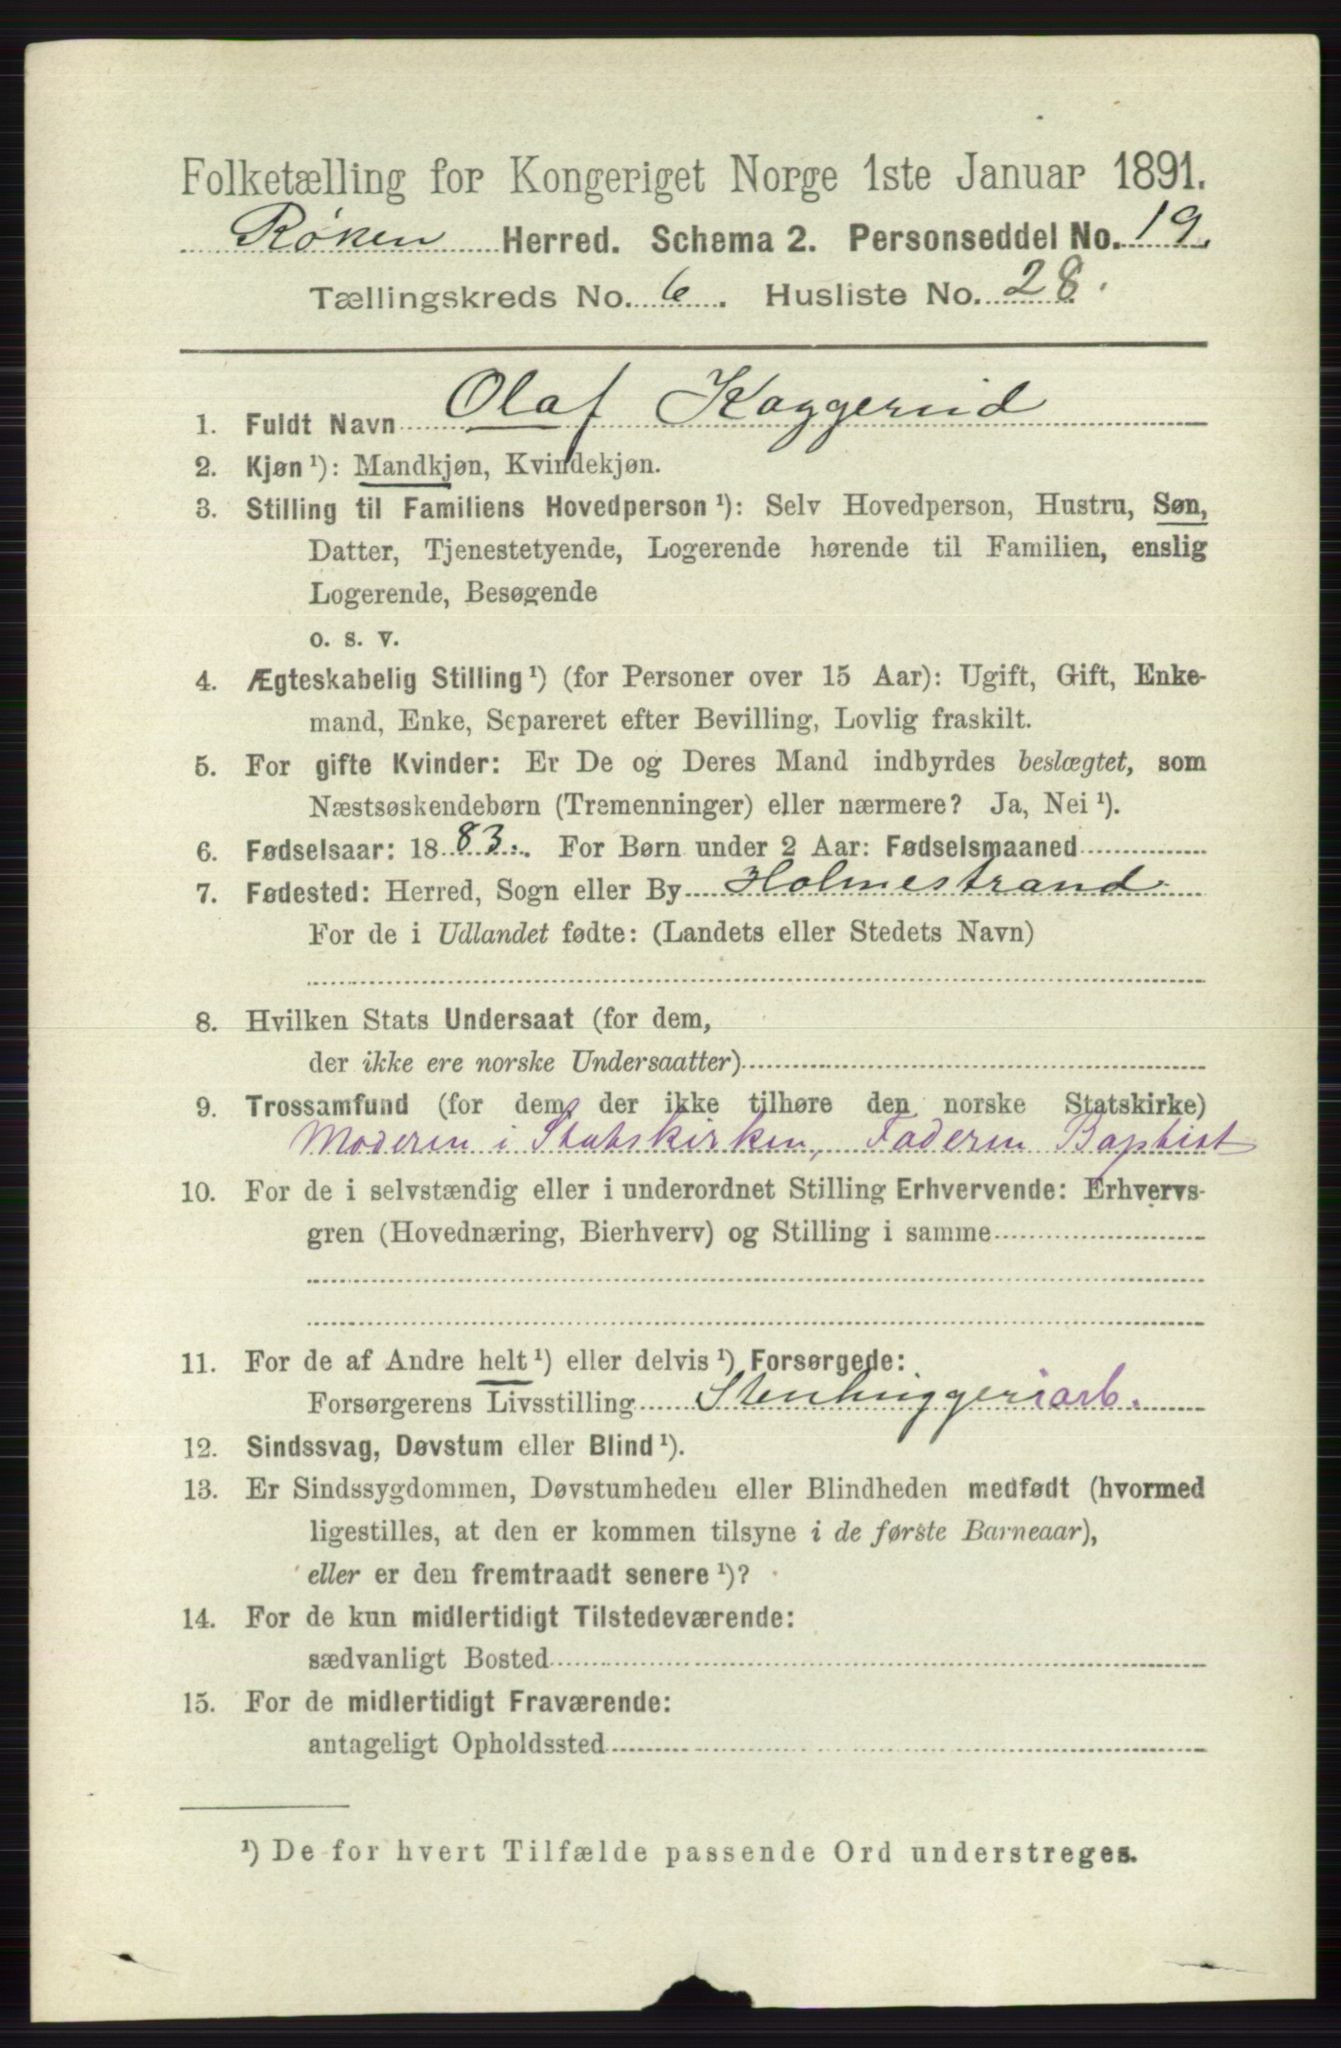 Folketælling for Kongeriget Norge 1ste Januar 1891.
Røken Herred. Schema 2. Personseddel No. 19.
Tællingskreds No. 6. Husliste No. 28.
1. Fuldt Navn Olaf Kaggerud
2. Kjøn ¹): Mandkjøn, Kvindekjøn.
3. Stilling til Familiens Hovedperson ¹): Selv Hovedperson, Hustru, Søn,
Datter, Tjenestetyende, Logerende hørende til Familien, enslig
Logerende, Besøgende
o. s. v.
4. Ægteskabelig Stilling ¹) (for Personer over 15 Aar): Ugift, Gift, Enke-
mand, Enke, Separeret efter Bevilling, Lovlig fraskilt.
5. For gifte Kvinder: Er De og Deres Mand indbyrdes beslægtet, som
Næstsøskendebørn (Tremenninger) eller nærmere? Ja, Nei ¹).
6. Fødselsaar: 1883. For Børn under 2 Aar: Fødselsmaaned
7. Fødested: Herred, Sogn eller By Holmestrand
For de i Udlandet fødte: (Landets eller Stedets Navn)
8. Hvilken Stats Undersaat (for dem,
der ikke ere norske Undersaatter)
9. Trossamfund (for dem, der ikke tilhøre den norske Statskirke)
Moderen i Statskirken, Faderen Baptist
10. For de i selvstændig eller i underordnet Stilling Erhvervende: Erhvervs-
gren (Hovednæring, Bierhverv) og Stilling i samme
11. For de af Andre helt ¹) eller delvis ¹) Forsørgede:
Forsørgerens Livsstilling Stenhuggeriarb.
12. Sindssvag, Døvstum eller Blind ¹).
13. Er Sindssygdommen, Døvstumheden eller Blindheden medfødt (hvormed
ligestilles, at den er kommen tilsyne i de første Barneaar),
eller er den fremtraadt senere ¹)?
14. For de kun midlertidigt Tilstedeværende:
sædvanligt Bosted
15. For de midlertidigt Fraværende:
antageligt Opholdssted
¹) De for hvert Tilfælde passende Ord understreges.